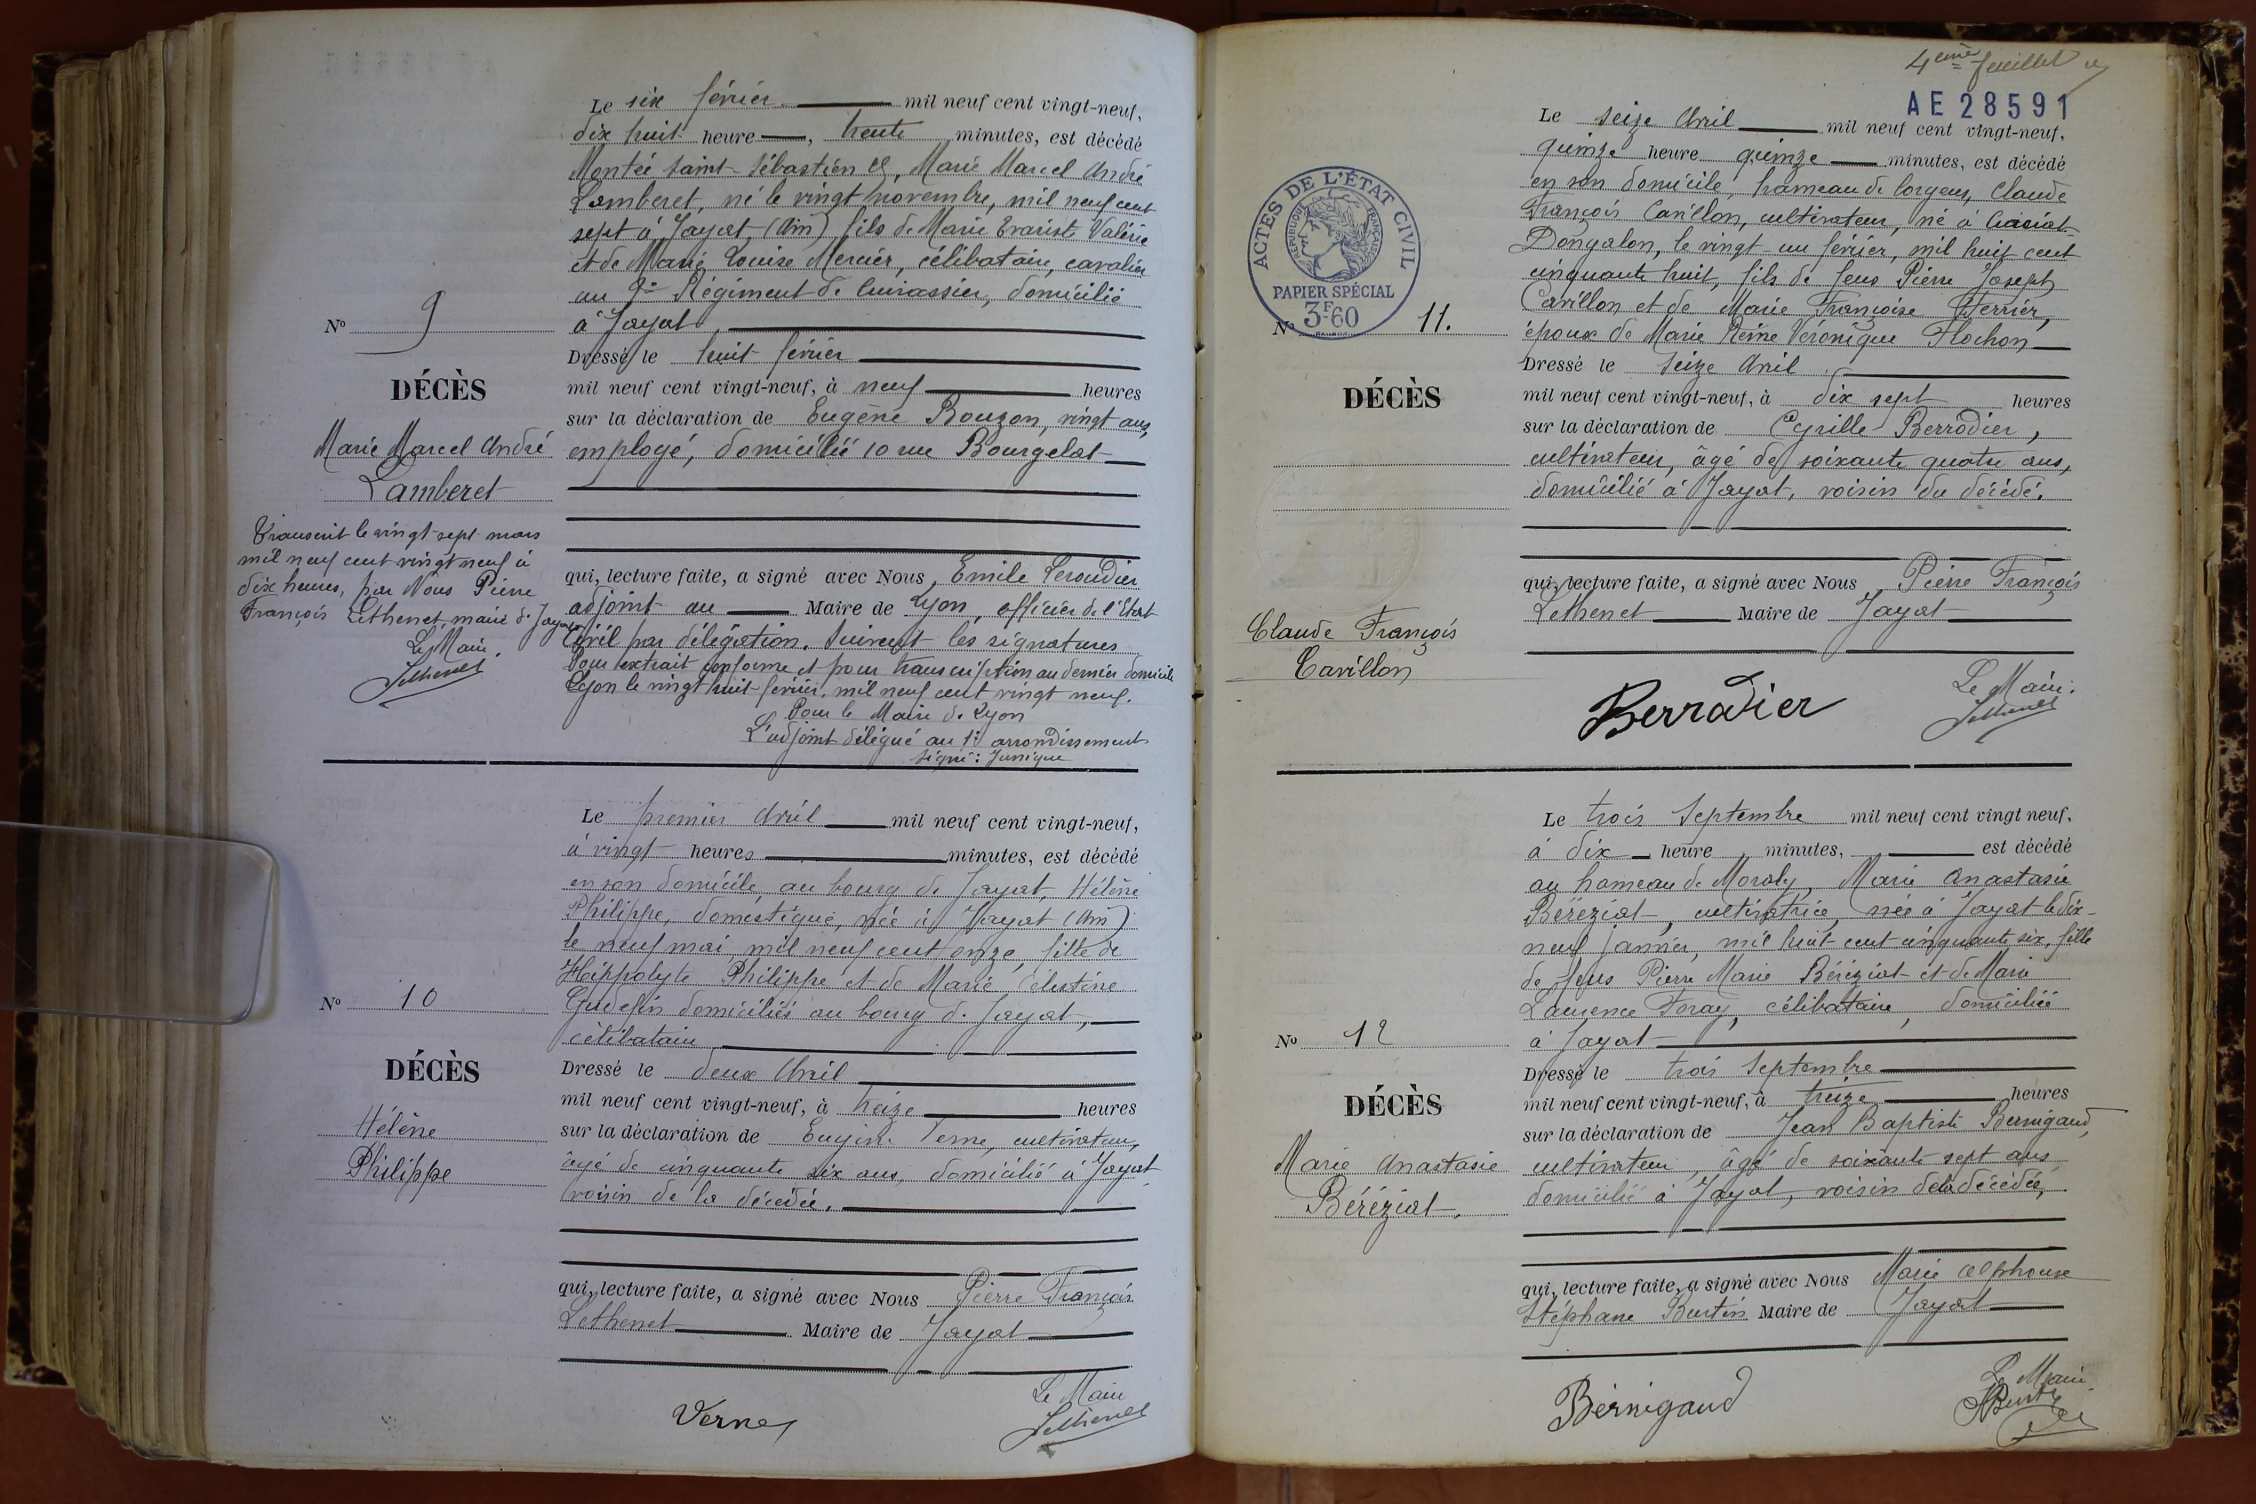 Le six février mil neuf cent vingt-neuf,
dix huit heure, trente minutes, est décédé
Montée Saint-Sébastien, Marie Marcel André
Lamberet, né le vingt novembre, mil neuf cent
sept à Jayat (Ain) fils de Marie Evariste Valérie
et de Marie Louise Mercier, célibataire, cavalier
au Régiment de Cuirassier, domicilié
à Jayat,
Dressé le huit février
mil neuf cent vingt-neuf, à neuf heures
sur la déclaration de Eugène Bouzon, vingt ans,
employé, domicilié 10 rue Bourgelat
qui, lecture faite, a signé avec Nous, Emile Leroudier
adjoint au Maire de Lyon, officier de l'Etat
Civil par délégation. Suivent les signatures
Pour extrait conforme et pour transcription au dernier domicile
Lyon le vingt huit février, mil neuf cent vingt neuf.
Pour le Maire de Lyon
L'adjoint délégué au 1er arrondissement
signé: Junique
No 9
DÉCÈS
Marie Marcel André
Lamberet
Transcrit le vingt-sept mars
mil neuf cent vingt neuf à
dix heures, par Nous Pierre
François Lethenet, maire de Jayat
Le Maire.
Lethenet
Le premier Avril mil neuf cent vingt-neuf,
à vingt heures minutes, est décédé
en son domicile, au bourg de Jayat, Hélène
Philippe, domestique, née à Jayat (Ain)
le neuf mai, mil neuf cent onze, fille de
Hippolyte Philippe et de Marie Célestine
Gudefin domiciliés au bourg de Jayat,
célibataire
Dressé le deux Avril
mil neuf cent vingt-neuf, à treize heures
sur la déclaration de Eugène Verne, cultivateur,
âgé de cinquante six ans, domicilié à Jayat
voisin de la décédée.
qui, lecture faite, a signé avec Nous Pierre François
Lethenet Maire de Jayat
Verne
Le Maire
Lethenet
No 10
DÉCÈS
Hélène
Philippe
4ème feuillet
AE 28591
ACTES DE L'ÉTAT CIVIL
RÉPUBLIQUE FRANÇAISE
PAPIER SPÉCIAL
3F60
Le seize Avril mil neuf cent vingt-neuf,
quinze heure quinze minutes, est décédé
en son domicile, hameau de Corgeus, Claude
François Cavillon, cultivateur, né à Curciat-
Dongalon, le vingt-un février, mil huit cent
cinquante huit, fils de feus Pierre Joseph
Cavillon et de Marie Françoise Ferrier,
époux de Marie Reine Véronique Flochon
Dressé le seize Avril
mil neuf cent vingt-neuf, à dix sept heures
sur la déclaration de Cyrille Berrodier,
cultivateur, âgé de soixante quatre ans,
domicilié à Jayat, voisin du décédé.
qui, lecture faite, a signé avec Nous Pierre François
Lethenet Maire de Jayat
Berrodier
Le Maire.
Lethenet
No 11.
DÉCÈS
Claude François
Cavillon
Le trois Septembre mil neuf cent vingt neuf,
à dix heure minutes, est décédé
au hameau de Moraly, Marie Anastasie
Béréziat, cultivatrice, née à Jayat le dix-
neuf janvier, mil huit-cent cinquante six, fille
de feus Pierre Marie Béréziat et de Marie
Laurence Foray, célibataire, domiciliée
à Jayat
Dressé le trois Septembre
mil neuf cent vingt-neuf, à treize heures
sur la déclaration de Jean Baptiste Bernigaud,
cultivateur, âgé de soixante sept ans
domicilié à Jayat, voisin de la décédée,
qui, lecture faite, a signé avec Nous Marie Alphonse
Stéphane Burtin Maire de Jayat
Bernigaud
Le Maire
Burtin
No 12
DÉCÈS
Marie Anastasie
Béréziat.